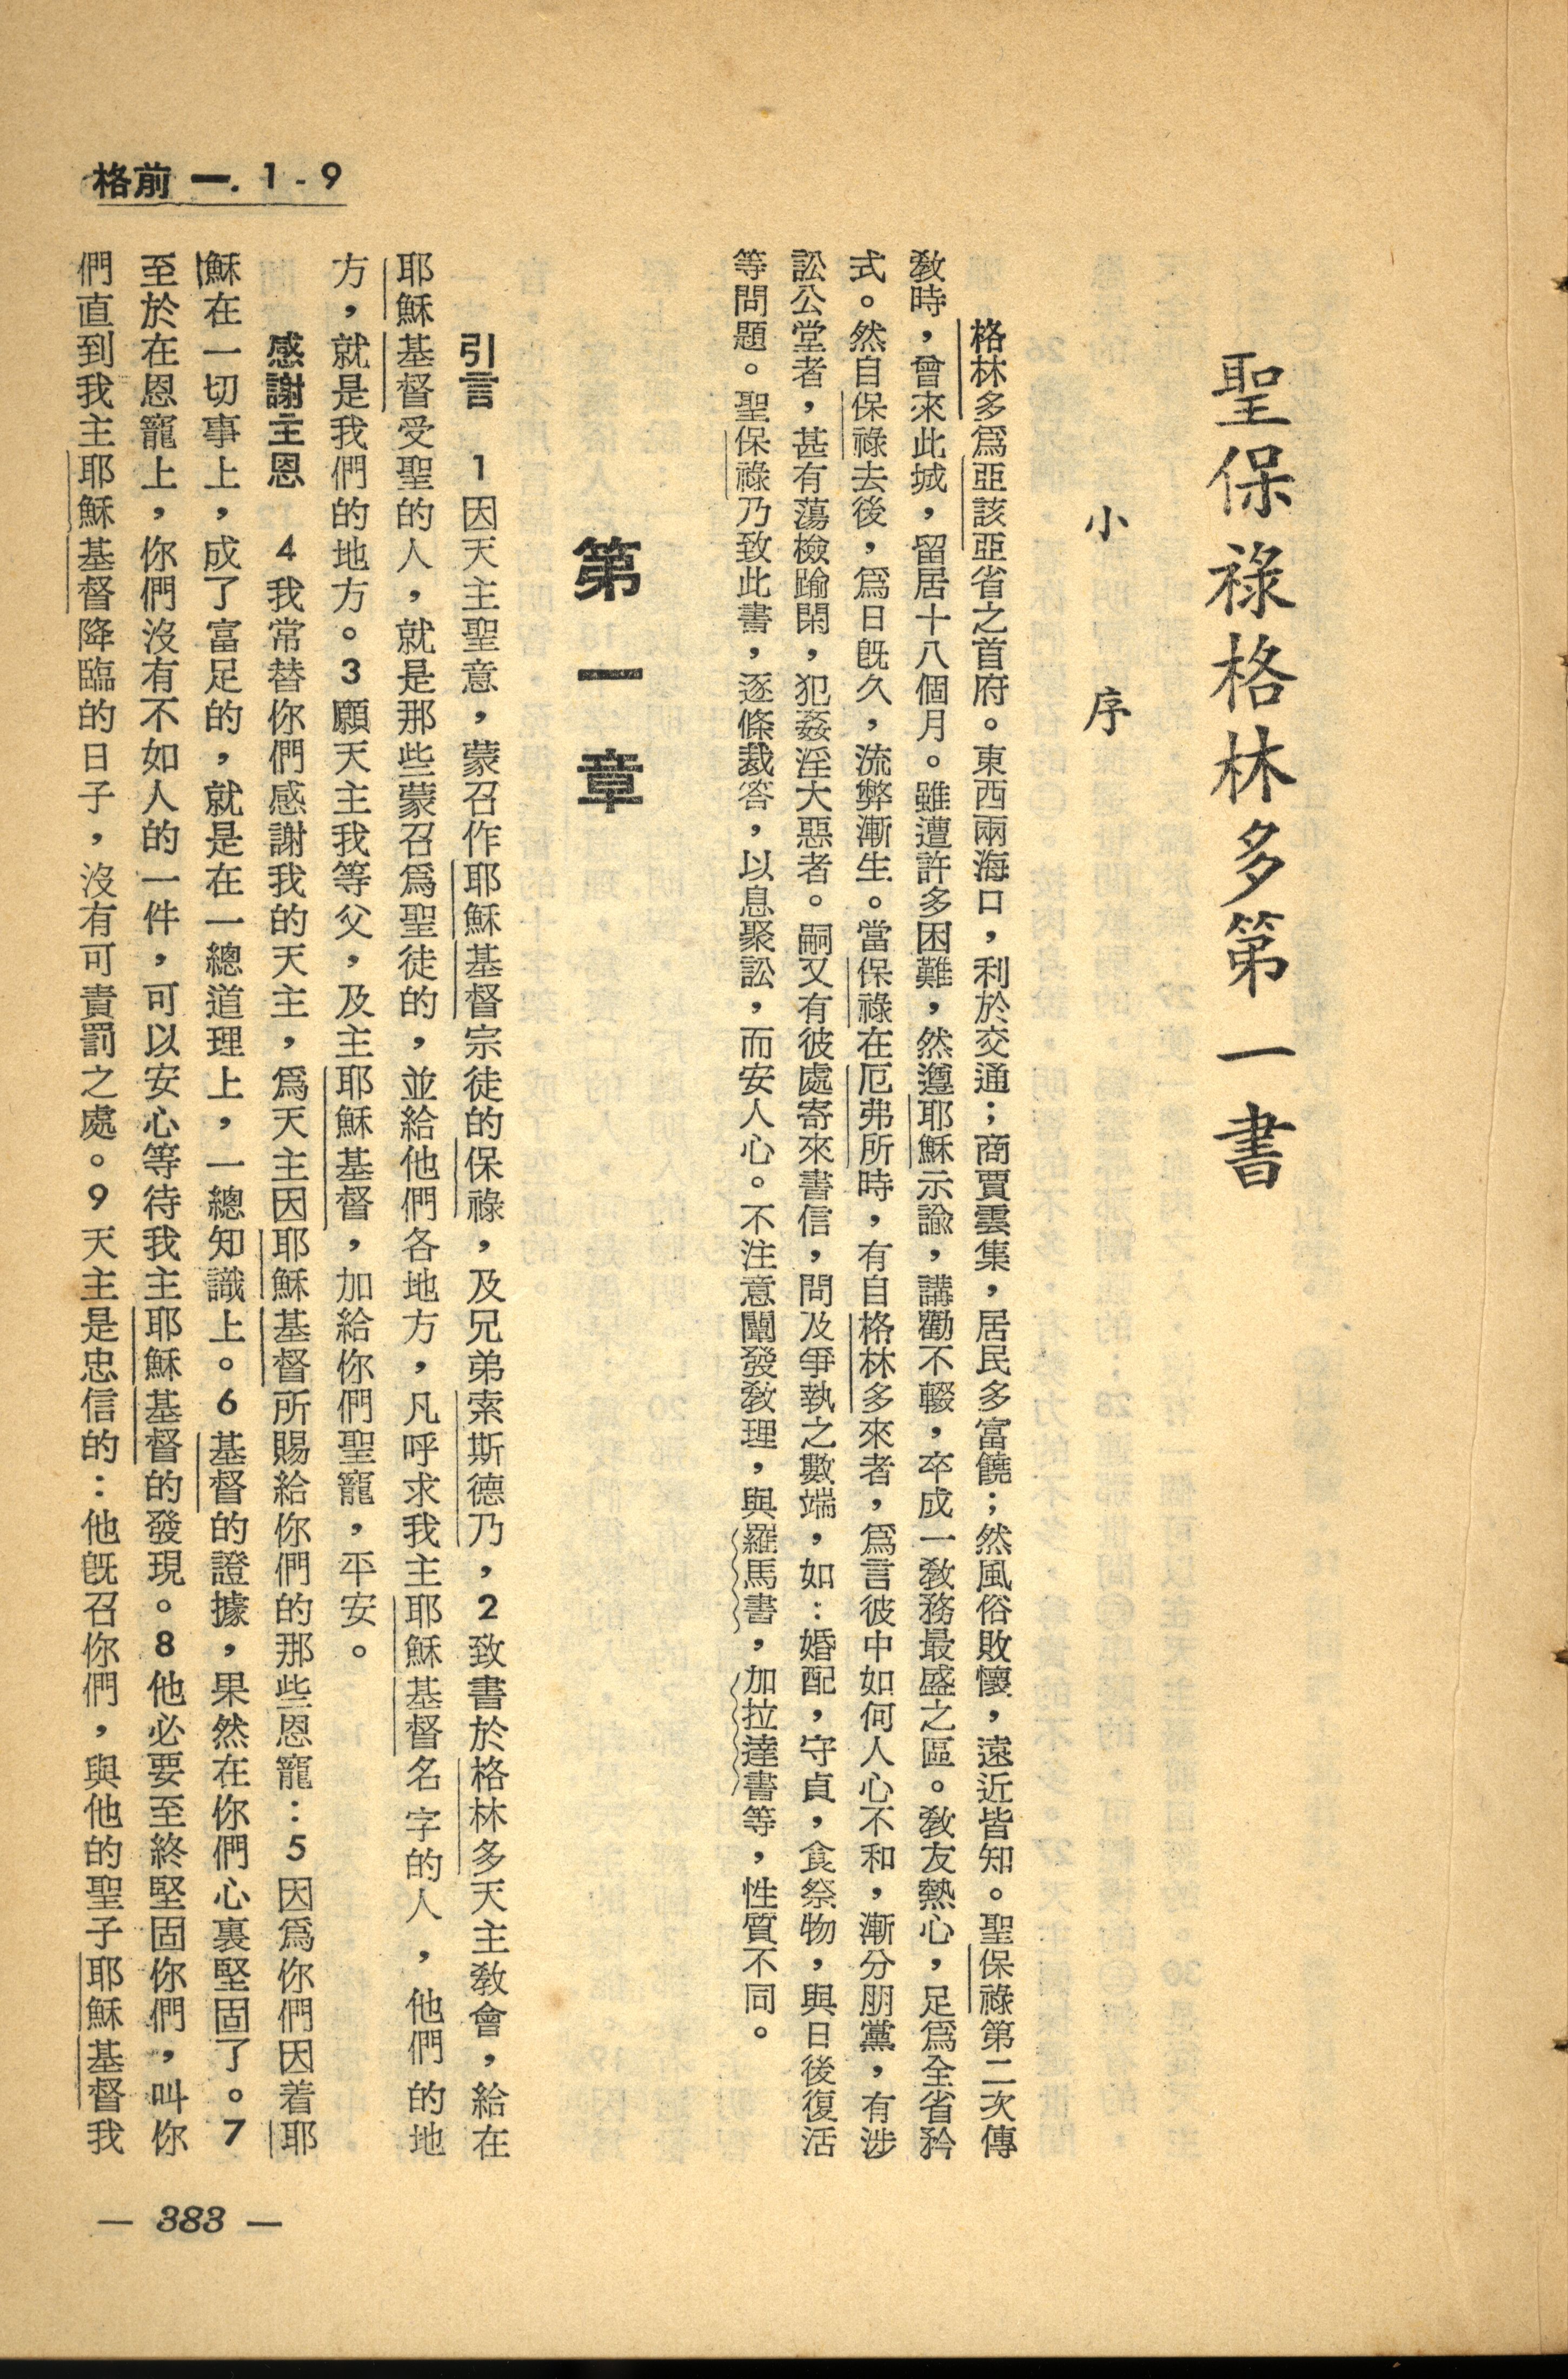 格前 一. 1-9
聖保祿格林多第一書
小序
格林多爲亞該亞省之首府。東西兩海口，利於交通；商賈雲集，居民多富饒；然風俗敗懷，遠近皆知。聖保祿第二次傳
教時，曾來此城，留居十八個月。雖遭許多困難，然遵耶穌示諭，講勸不輟，卒成一教務最盛之區。教友熱心，足爲全省矜
式。然自保祿去後，爲日旣久，流弊漸生。當保祿在厄弗所時，有自格林多來者，爲言彼中如何人心不和，漸分朋黨，有涉
訟公堂者，甚有蕩檢踰閑，犯姦淫大惡者。嗣又有彼處寄來書信，問及爭執之數端，如：婚配，守貞，食祭物，與日後復活
等問題。聖保祿乃致此書，逐條裁答，以息聚訟，而安人心。不注意闡發教理，與羅馬書，加拉達書等，性質不同。
第一章
引言 1因天主聖意，蒙召作耶穌基督宗徒的保祿，及兄弟索斯德乃，2致書於格林多天主教會，給在
耶穌基督受聖的人，就是那些蒙召爲聖徒的，並給他們各地方，凡呼求我主耶穌基督名字的人，他們的地
方，就是我們的地方。3願天主我等父，及主耶穌基督，加給你們聖寵，平安。
感謝主恩 4我常替你們感謝我的天主，爲天主因耶穌基督所賜給你們的那些恩寵：5因爲你們因着耶
穌在一切事上，成了富足的，就是在一總道理上，一總知識上。6基督的證據，果然在你們心裏堅固了。7
至於在恩寵上，你們沒有不如人的一件，可以安心等待我主耶穌基督的發現。8他必要至終堅固你們，叫你
們直到我主耶穌基督降臨的日子，沒有可責罰之處。9天主是忠信的：他旣召你們，與他的聖子耶穌基督我
— 383 —